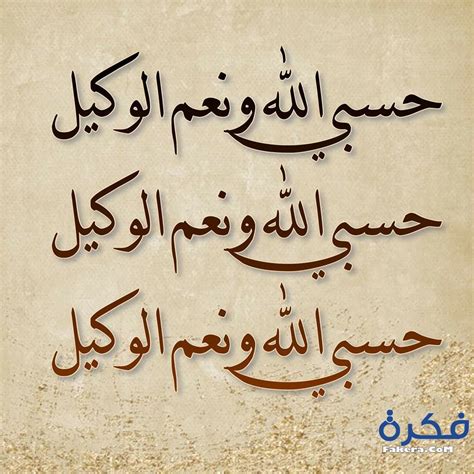 حسبي الله ونعم الوكيل
حسبي الله ونعم الوكيل
حسبي الله ونعم الوكيل
فكرة
Fakera.CoM